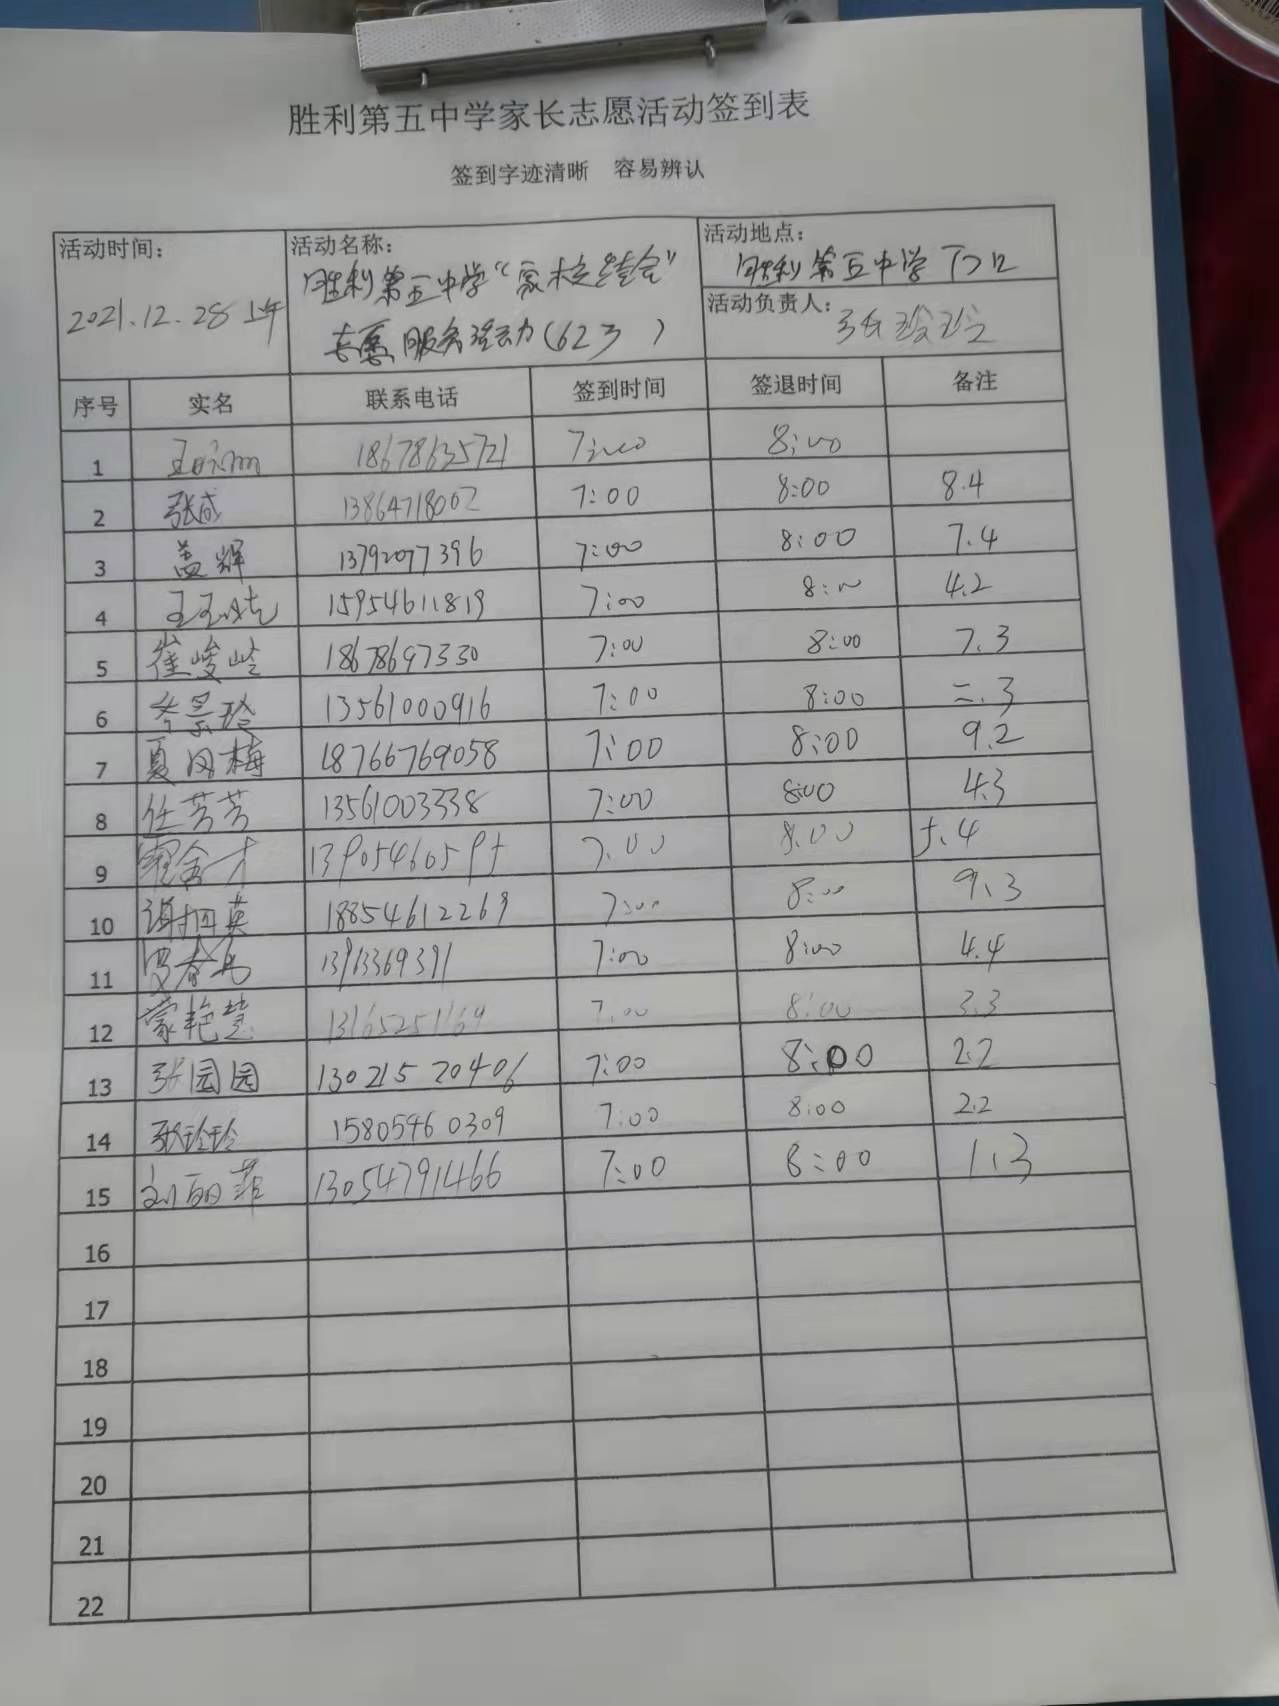 胜利第五中学家长志愿活动签到表
签到字迹清晰 容易辨认
活动时间：
2021.12.28上午
活动名称：
胜利第五中学“家校结合”
志愿服务活动(623 )
活动地点：
胜利第五中学门口
活动负责人：
张玲玲
序号 实名 联系电话 签到时间 签退时间 备注
1 18678635721 7:00 8:00
2 张成 13864718002 7:00 8:00 8.4
3 盖辉 13792077396 7:00 8:00 7.4
4 15954611819 7:00 8:00 4.2
5 崔峻岭 18678697330 7:00 8:00 7.3
6 李景玲 13561000916 7:00 8:00 二.3
7 夏风梅 18766769058 7:00 8:00 9.2
8 任芳芳 13561003338 7:00 8:00 4.3
9 7.00 8.00 .4
10 18854612269 7:00 8:00 9.3
11 7:00 8:00 4.4
12 蒙艳慧 13165251169 7.00 8:00 3.3
13 张园园 13021520406 7:00 8:00 2.2
14 张玲玲 15805460309 7:00 8:00 2.2
15 刘丽菲 13054791466 7:00 8:00 1.3
16
17
18
19
20
21
22